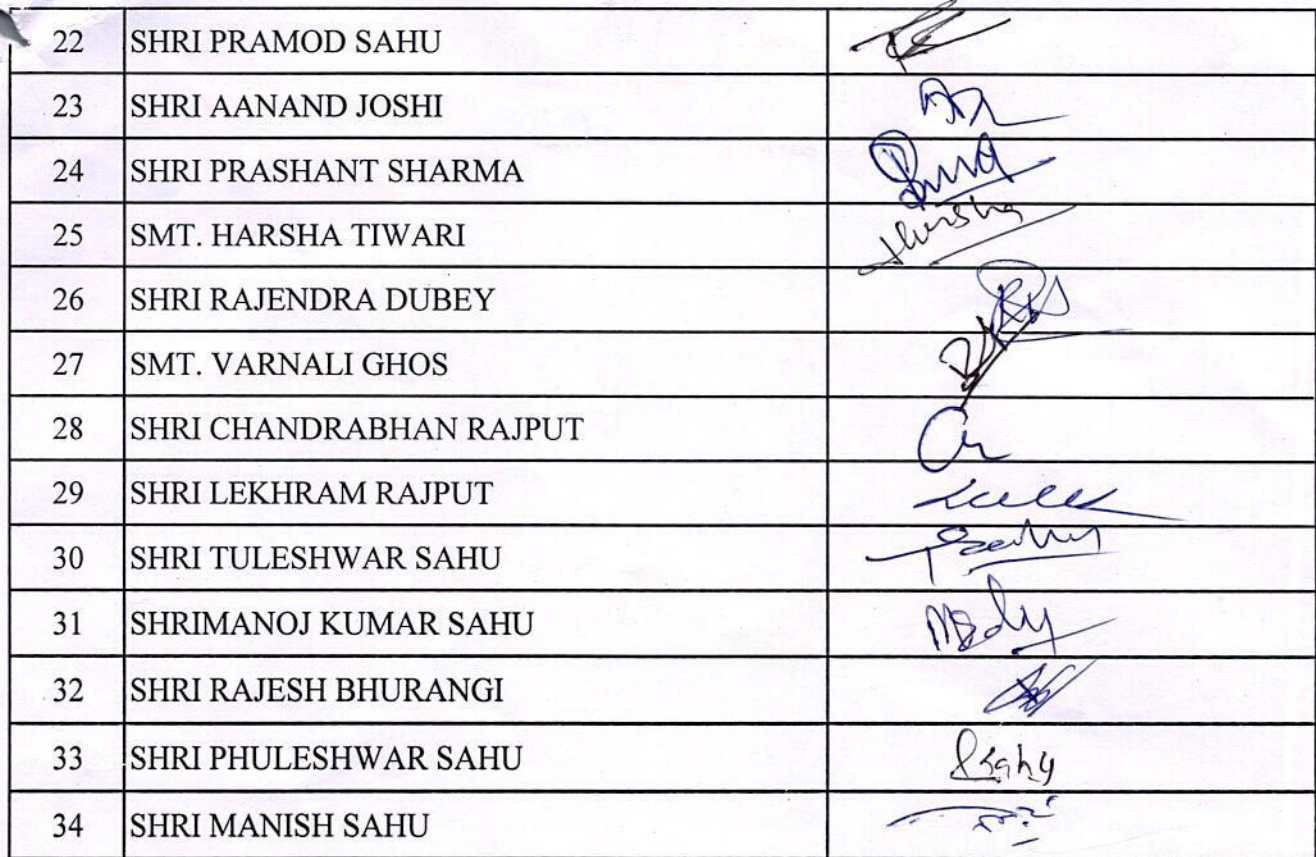 22 SHRI PRAMOD SAHU
23 SHRI AANAND JOSHI
24 SHRI PRASHANT SHARMA
25 SMT. HARSHA TIWARI Harsha
26 SHRI RAJENDRA DUBEY
27 SMT. VARNALI GHOS
28 SHRI CHANDRABHAN RAJPUT
29 SHRI LEKHRAM RAJPUT
30 SHRI TULESHWAR SAHU
31 SHRIMANOJ KUMAR SAHU
32 SHRI RAJESH BHURANGI
33 SHRI PHULESHWAR SAHU
34 SHRI MANISH SAHU